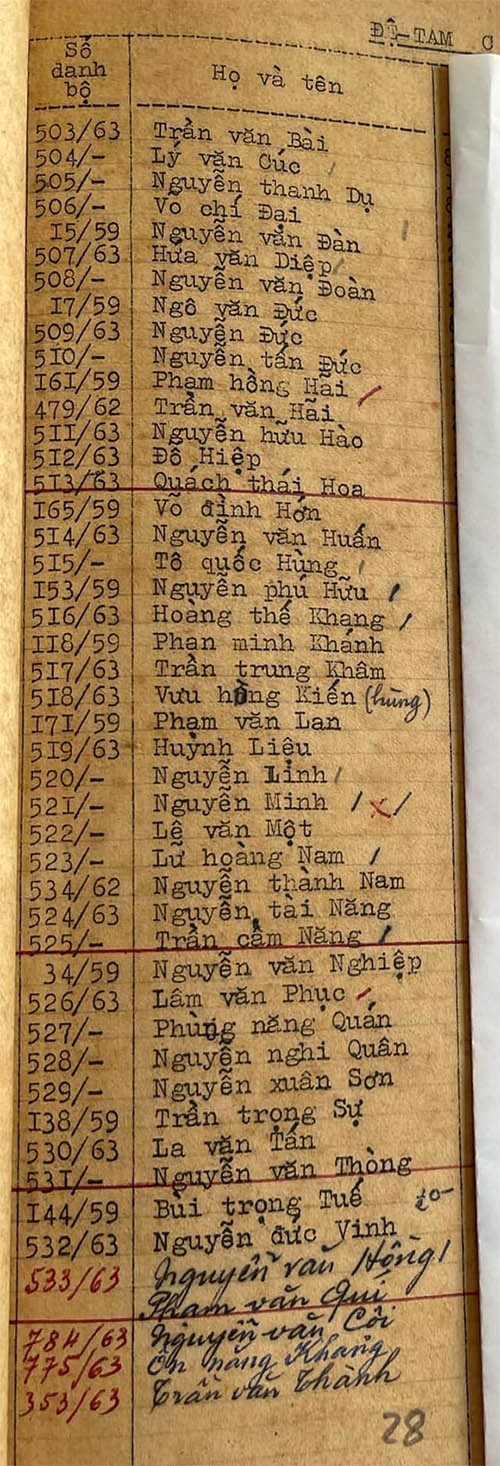 ĐỆ-TAM C
Số danh bộ | Họ và tên
503/63 Trần văn Bài
504/- Lý văn Cúc /
505/- Nguyễn thanh Dụ
506/- Võ chí Đại
I5/59 Nguyễn văn Đàn /
507/63 Hứa văn Diệp /
508/- Nguyễn văn Đoàn
I7/59 Ngô văn Đức
509/63 Nguyễn Đức
5I0/- Nguyễn tấn Đức
I6I/59 Phạm hồng Hãi /
479/62 Trần văn Hãi
5II/63 Nguyễn hữu Hào
5I2/63 Đỗ Hiệp
5I3/63 Quách thái Hoa
I65/59 Võ đình Hớn
5I4/63 Nguyễn văn Huấn
5I5/- Tô quốc Hùng /
I53/59 Nguyễn phú Hữu /
5I6/63 Hoàng thế Khang /
II8/59 Phan minh Khánh
5I7/63 Trần trung Khâm
5I8/63 Vưu hồng Kiến (hùng)
I7I/59 Phạm văn Lan
5I9/63 Huỳnh Liệu
520/- Nguyễn Linh /
52I/- Nguyễn Minh / x /
522/- Lê văn Một
523/- Lữ hoàng Nam /
534/62 Nguyễn thành Nam
524/63 Nguyễn tài Năng
525/- Trần cẩm Năng /
34/59 Nguyễn văn Nghiệp
526/63 Lâm văn Phục /
527/- Phùng năng Quán
528/- Nguyễn nghi Quân
529/- Nguyễn xuân Sơn
I38/59 Trần trọng Sự
530/63 La văn Tấn
53I/- Nguyễn văn Thòng
I44/59 Bùi trọng Tuế
532/63 Nguyễn đức Vinh
533/63 Nguyễn văn Hồng /
Phạm văn Quí
784/63 Nguyễn văn Côi
775/63 Ôn năng Khang
353/63 Trần văn Thành
28